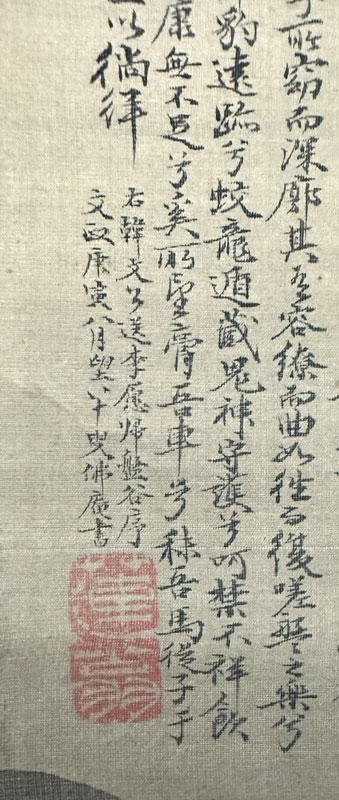 所窈而深廓其有容繚而曲如往而復嗟盤之樂兮
豹遠跡兮蛟龍遁藏鬼神守護兮呵禁不祥飲
康無不足兮奚所望膏吾車兮秣吾馬從子于
以徜徉
右韓文公送李愿歸盤谷序
文政庚寅八月望八十叟佛庵書